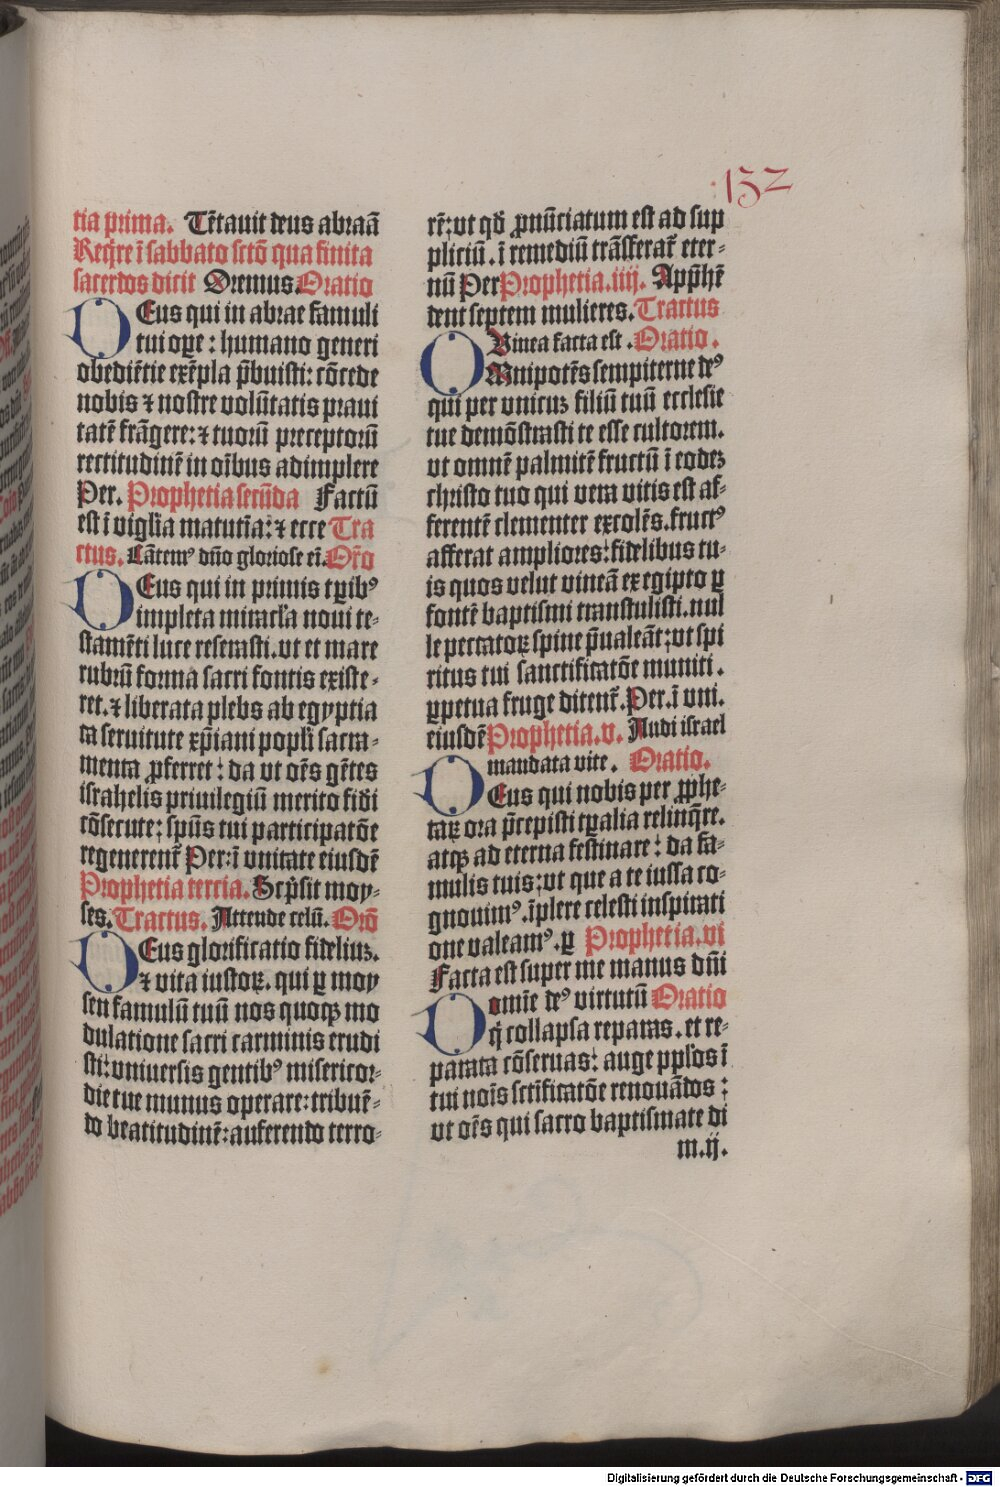 132
tia prima. Tētauit deus abraā
Reqͥre ī sabbato sctō qua finita
sacerdos dicit Oremus. Oratio
DEus qui in abrae famuli
tui oꝑe : humano generi
obediētie exēpla p̄buisti: cōcede
nobis ⁊ nostre volūtatis praui
tatē frāgere: ⁊ tuorū preceptorū
rectitudinē in oībus adimplere
Per. Prophetia secūda Factū
est ī vigl'ia matutīa: ⁊ ecce Tra
ctus. Cātemꝰ dn̄o gloriose eī. Or̄o
DEus qui in primis tꝑibꝰ
impleta miracl'a noui te-
stamēti luce reserasti. vt et mare
rubrū forma sacri fontis existe-
ret. ⁊ liberata plebs ab egyptia
ca seruitute xp̄iani popl'i sacra-
menta ꝓferret : da vt oēs gētes
israhelis priuilegiū merito fidi
cōsecute: spūs tui participatōe
regenerent᷑ Per: ī vnitate eiusdē
Prophetia tercia. Scp̄sit moy-
ses. Tractus. Attende celū. Orō
DEus glorificatio fideliuꝫ.
⁊ vita iustoꝝ. qui ꝑ moy
sen famulū tuū nos quoqꝫ mo
dulatione sacri carminis erudi
sti: vniuersis gentibꝰ misericor-
die tue munus operare: tribuē-
do beatitudinē: auferendo terro-
rē: vt qd̄ ꝓnūciatum est ad sup
pliciū. ī remediū trāsferat᷑ eter-
nū Per Prophetia. iiij. App̄hē
dent septem mulieres. Tractus
Vinea facta est . Oratio .
OMnipotēs sempiterne deꝰ
qui per vnicuꝫ filiū tuū ecclesie
tue demōstrasti te esse cultorem.
vt omnē palmitē fructū ī eodeꝫ
christo tuo qui vera vitis est af-
ferentē clementer excolēs. fructꝰ
afferat ampliores: fidelibus tu-
is quos velut vineā ex egipto ꝑ
fontē baptismi transtulisti. nul
le peccatoꝝ spine p̄ualeāt: vt spi
ritus tui sanctificatōe muniti .
ꝑpetua fruge ditent᷑. Per. ī vni.
eiusdē Prophetia. v. Audi israel
mandata vite . Oratio.
DEus qui nobis per ꝓphe-
taꝝ ora p̄cepisti tꝑalia relinq̄re.
atqꝫ ad eterna festinare : da fa-
mulis tuis: vt que a te iussa co-
gnouimꝰ. īplere celesti inspirati
one valeamꝰ. ꝑ Prophetia. vi
Facta est super me manus dn̄i
Domīe deꝰ virtutū Oratio
q̄ collapsa reparas. et re-
parata cōseruas: auge ppl'os ī
tui noīs sctīficatōe renouādos :
vt oēs qui sacro baptismate di
m. ij.
Digitalisierung gefördert durch die Deutsche Forschungsgemeinschaft - DFG